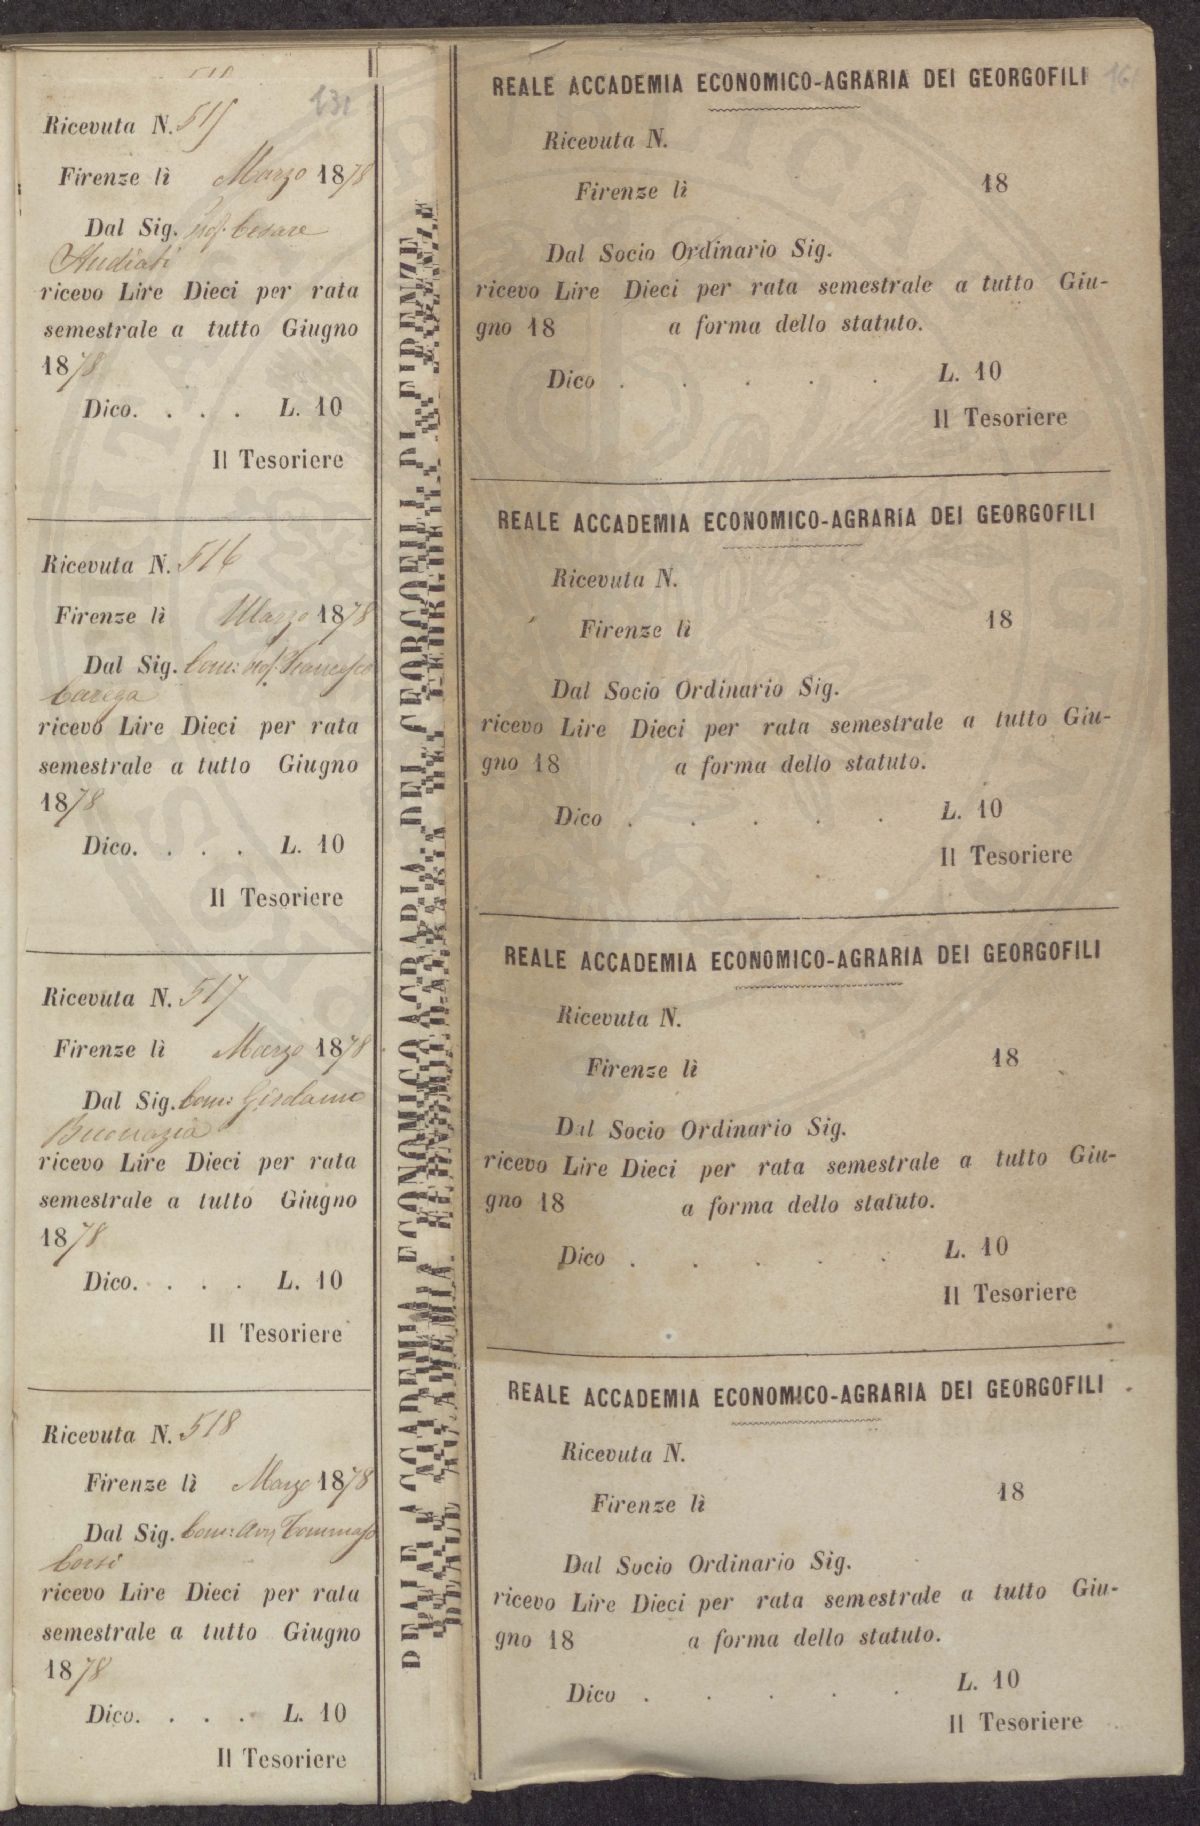 131
Ricevuta N. 515
Firenze lì Marzo 1878
Dal Sig. Prof. Cesare
Studiati
ricevo Lire Dieci per rata
semestrale a tutto Giugno
1878
Dico. . . . L. 10
Il Tesoriere
Ricevuta N. 516
Firenze lì Marzo 1878
Dal Sig. Com: Prof. Francesco
Carega
ricevo Lire Dieci per rata
semestrale a tutto Giugno
1878
Dico. . . . L. 10
Il Tesoriere
Ricevuta N. 517
Firenze lì Marzo 1878
Dal Sig. Com: Girolamo
Buonazia
ricevo Lire Dieci per rata
semestrale a tutto Giugno
1878
Dico. . . . L. 10
Il Tesoriere
Ricevuta N. 518
Firenze lì Marzo 1878
Dal Sig. Com: Avv. Tommaso
Corsi
ricevo Lire Dieci per rata
semestrale a tutto Giugno
1878
Dico. . . . L. 10
Il Tesoriere
REALE ACCADEMIA ECONOMICO AGRARIA DEI GEORGOFILI DI FIRENZE
REALE ACCADEMIA ECONOMICO-AGRARIA DEI GEORGOFILI
Ricevuta N.
Firenze lì 18
Dal Socio Ordinario Sig.
ricevo Lire Dieci per rata semestrale a tutto Giu-
gno 18 a forma dello statuto.
Dico . . . . . L. 10
Il Tesoriere
REALE ACCADEMIA ECONOMICO-AGRARIA DEI GEORGOFILI
Ricevuta N.
Firenze lì 18
Dal Socio Ordinario Sig.
ricevo Lire Dieci per rata semestrale a tutto Giu-
gno 18 a forma dello statuto.
Dico . . . . . L. 10
Il Tesoriere
REALE ACCADEMIA ECONOMICO-AGRARIA DEI GEORGOFILI
Ricevuta N.
Firenze lì 18
Dal Socio Ordinario Sig.
ricevo Lire Dieci per rata semestrale a tutto Giu-
gno 18 a forma dello statuto.
Dico . . . . . L. 10
Il Tesoriere
REALE ACCADEMIA ECONOMICO-AGRARIA DEI GEORGOFILI
Ricevuta N.
Firenze lì 18
Dal Socio Ordinario Sig.
ricevo Lire Dieci per rata semestrale a tutto Giu-
gno 18 a forma dello statuto.
Dico . . . . . L. 10
Il Tesoriere